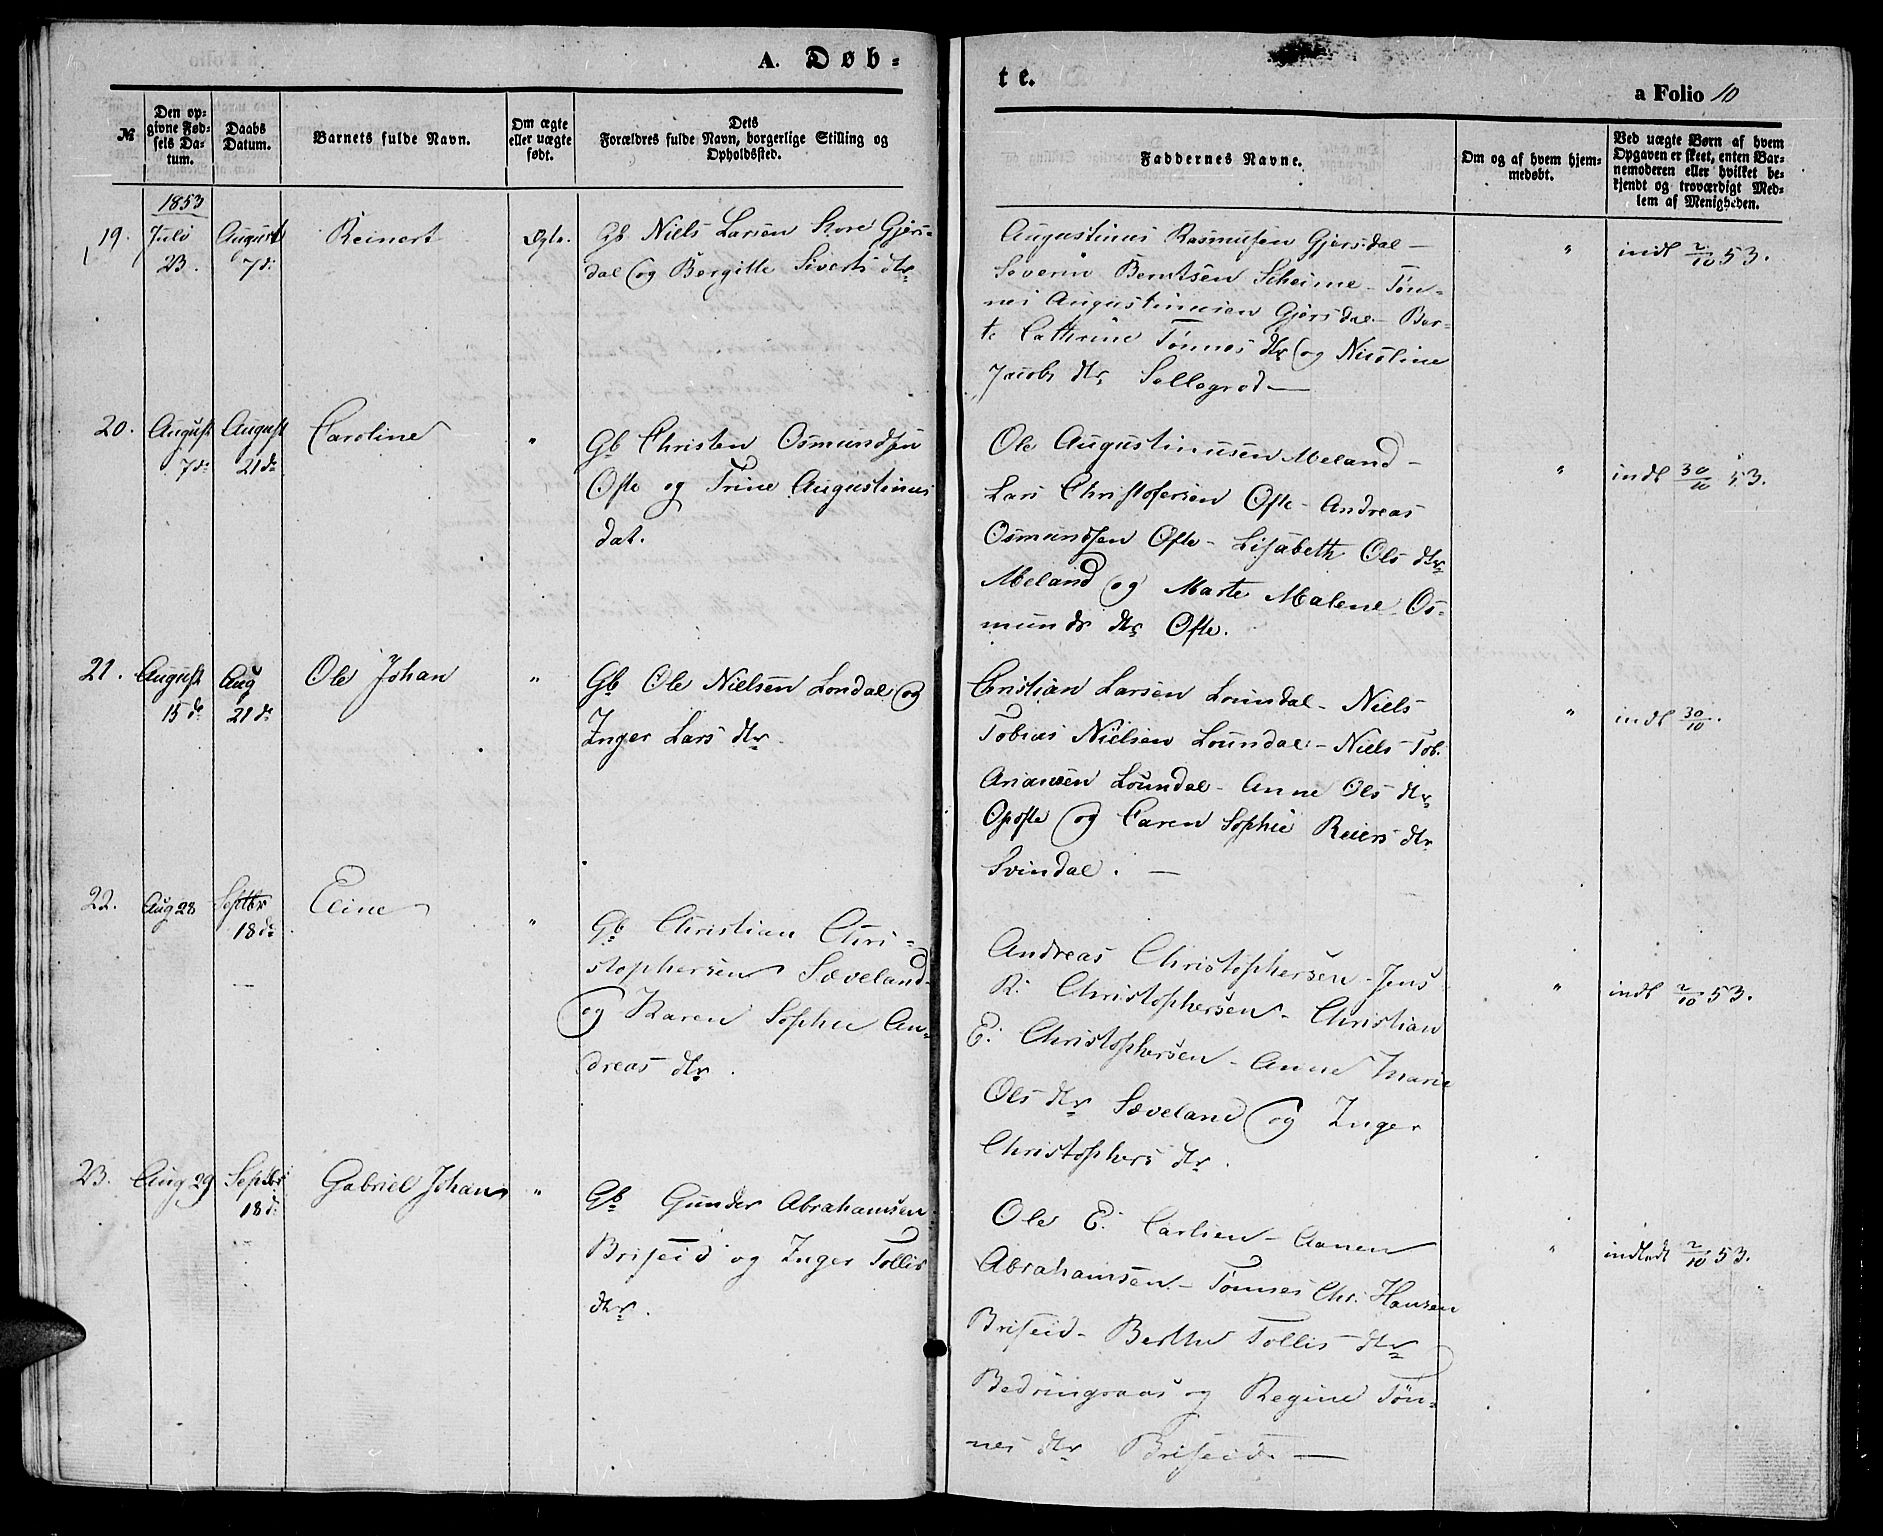 A. Døb-
te.
a Folio 10
№
Den op-
givne Fød-
sels Da-
tum.
Daabs
Datum.
Barnets fulde Navn.
Om ægte
eller uægte
født.
Dets
Forældres fulde Navn, borgerlige Stilling og
Opholdssted.
Faddernes Navne.
Om og af hvem hjem-
medøbt.
Ved uægte Børn af hvem
Opgaven er skeet, enten Bar-
nemoderen eller hvilket be-
kjendt og troværdigt Med-
lem af Menigheden.
1853
19.
Juli
23.
August
7de
Reinert
Ægte.
Gb Niels Larsen Store Gjers-
dal og Bergitte Siverts dtr
Augustinus Rasmusen Gjersdal -
Severin Berntsen Scheime - Tøn-
nes Augustinusen Gjersdal - Ber-
te Cathrine Tønnes dtr og Nicoline
Jacobs dtr Sellegrod -
"
indt 2/10 53.
20.
August
7de
August
21de
Caroline
"
Gb Christen Osmundsen
Ofte og Trine Augustinus
dat.
Ole Augustinusen Meland -
Lars Christofersen Ofte - Andreas
Osmundsen Ofte - Lisabeth Ols dtr
Meland og Marte Malene Os-
munds dtr Ofte.
"
indt 30/10 53.
21.
August
15de
Aug
21de
Ole Johan
"
Gb Ole Nielsen Londal og
Inger Lars dtr
Christian Larsen Loundal - Niels
Tobias Nielsen Loundal - Niels Tob.
Ariansen Loundal - Anne Ols dtr
Opofte og Caren Sophie Reiers dtr
Svindal. -
"
indt 30/10.
22.
Aug 28
Septbr
18de
Eline
"
Gb Christian Chri-
stophersen Sæveland
og Karen Sophie An-
dreas dtr.
Andreas Christophersen - Jens
R. Christophersen - Christian
E. Christophersen - Anne Marie
Ols dtr Sæveland og Inger
Christophers dtr.
"
indt 2/10 53.
23.
Aug 29
Septbr
18de
Gabriel Johan
"
Gb Gunder Abrahamsen
Briseid og Inger Tollis
dtr.
Ole E. Carlsen - Aanen
Abrahamsen - Tønnes Chr. Hansen
Briseid - Berthe Tollis dtr
Bedringsaas og Regine Tøn-
nes dtr Briseid. -
"
indledt 2/10 53.